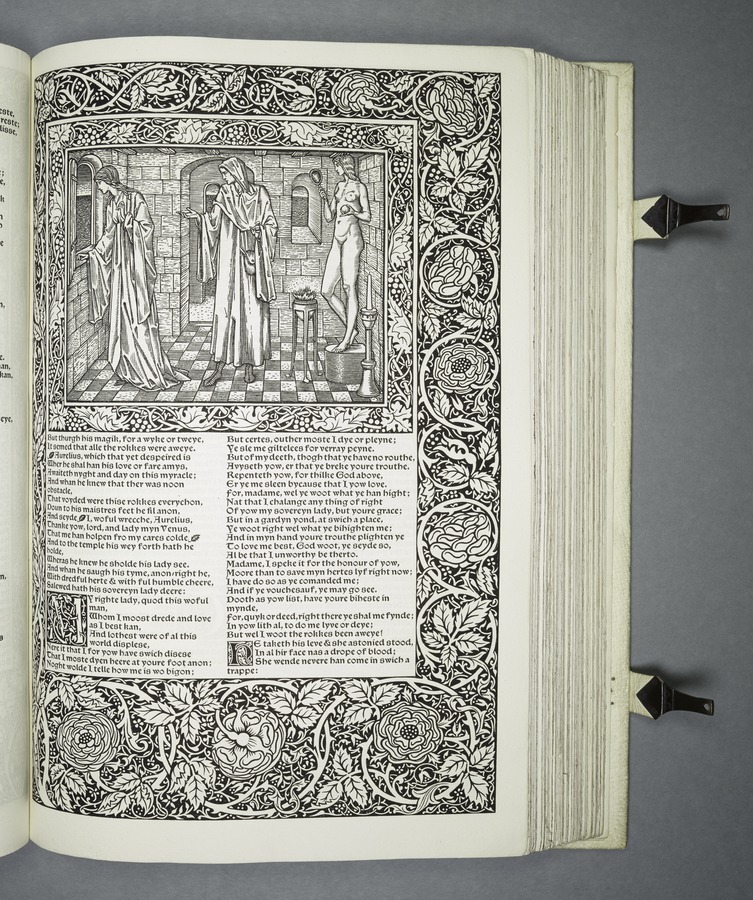 este,
reste;
disse,
;
e,
k
n
e
n,
e.
an,
kan,
eye,
n,
s
But thurgh his magik, for a wyke or tweye,
It semed that alle the rokkes were aweye.
Aurelius, which that yet despeired is
Wher he shal han his love or fare amys,
Awaiteth nyght and day on this myracle;
And whan he knew that ther was noon
obstacle,
That voyded were thise rokkes everychon,
Doun to his maistres feet he fil anon,
And seyde I, woful wrecche, Aurelius,
Thanke yow, lord, and lady myn Venus,
That me han holpen fro my cares colde.
And to the temple his wey forth hath he
holde,
Wheras he knew he sholde his lady see.
And whan he saugh his tyme, anon-right he,
With dredful herte & with ful humble cheere,
Salewed hath his sovereyn lady deere:
MY righte lady, quod this woful
man,
Whom I moost drede and love
as I best kan,
And lothest were of al this
world displese,
Nere it that I for yow have swich disese
That I moste dyen heere at youre foot anon;
Noght wolde I telle how me is wo bigon;
But certes, outher moste I dye or pleyne;
Ye sle me giltelees for verray peyne.
But of my deeth, thogh that ye have no routhe,
Avyseth yow, er that ye breke youre trouthe.
Repenteth yow, for thilke God above,
Er ye me sleen bycause that I yow love.
For, madame, wel ye woot what ye han hight;
Nat that I chalange any thing of right
Of yow my sovereyn lady, but youre grace;
But in a gardyn yond, at swich a place,
Ye woot right wel what ye bihighten me;
And in myn hand youre trouthe plighten ye
To love me best, God woot, ye seyde so,
Al be that I unworthy be therto.
Madame, I speke it for the honour of yow,
Moore than to save myn hertes lyf right now;
I have do so as ye comanded me;
And if ye vouchesauf, ye may go see.
Dooth as yow list, have youre biheste in
mynde,
For, quyk or deed, right there ye shal me fynde;
In yow lith al, to do me lyve or deye;
But wel I woot the rokkes been aweye!
HE taketh his leve & she astonied stood,
In al hir face nas a drope of blood;
She wende nevere han come in swich a
trappe: